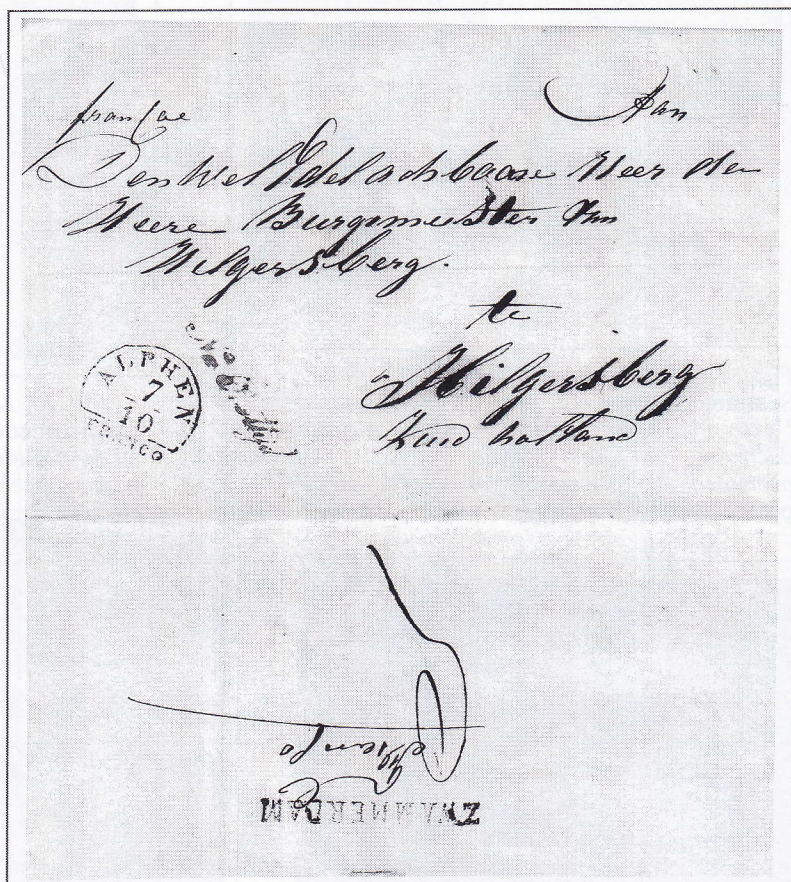 franco
Aan
Den Wel Edelachbaare Heer den
Heere Burgemeester van
Hilgersberg.
te
Hilgersberg
Zuid holland
ALPHEN
7
10
FRANCO
Na Posttijd
Franco
ZWAMMERDAM